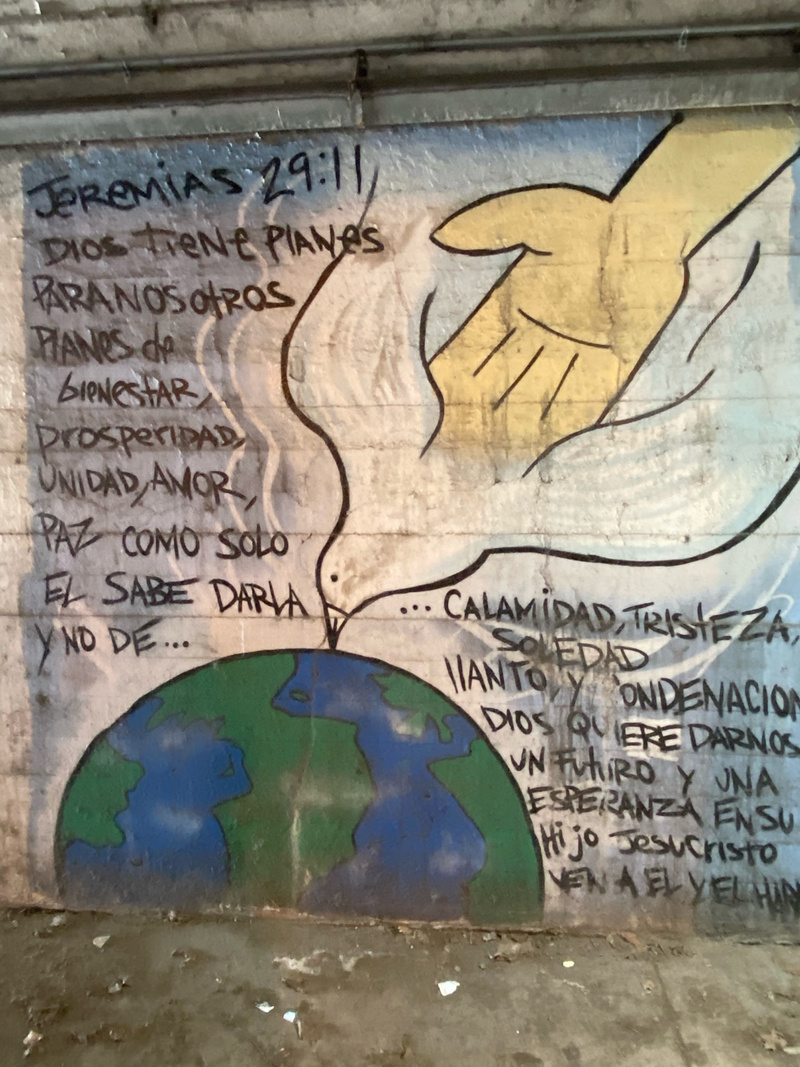 JEREMIAS 29:11
DIOS TIENE PLANES
PARA NOSOTROS
PLANES de
bIENESTAR,
PROSPERIDAD,
UNIDAD, AMOR,
PAZ COMO SOLO
EL SABE DARLA
Y NO DE...
... CALAMIDAD, TRISTEZA,
SOLEDAD
llANTO, Y ONDENACION
DIOS QUIERE DARNOS
UN FUTURO Y UNA
ESPERANZA EN SU
Hijo JESUCRISTO
VEN A EL Y EL